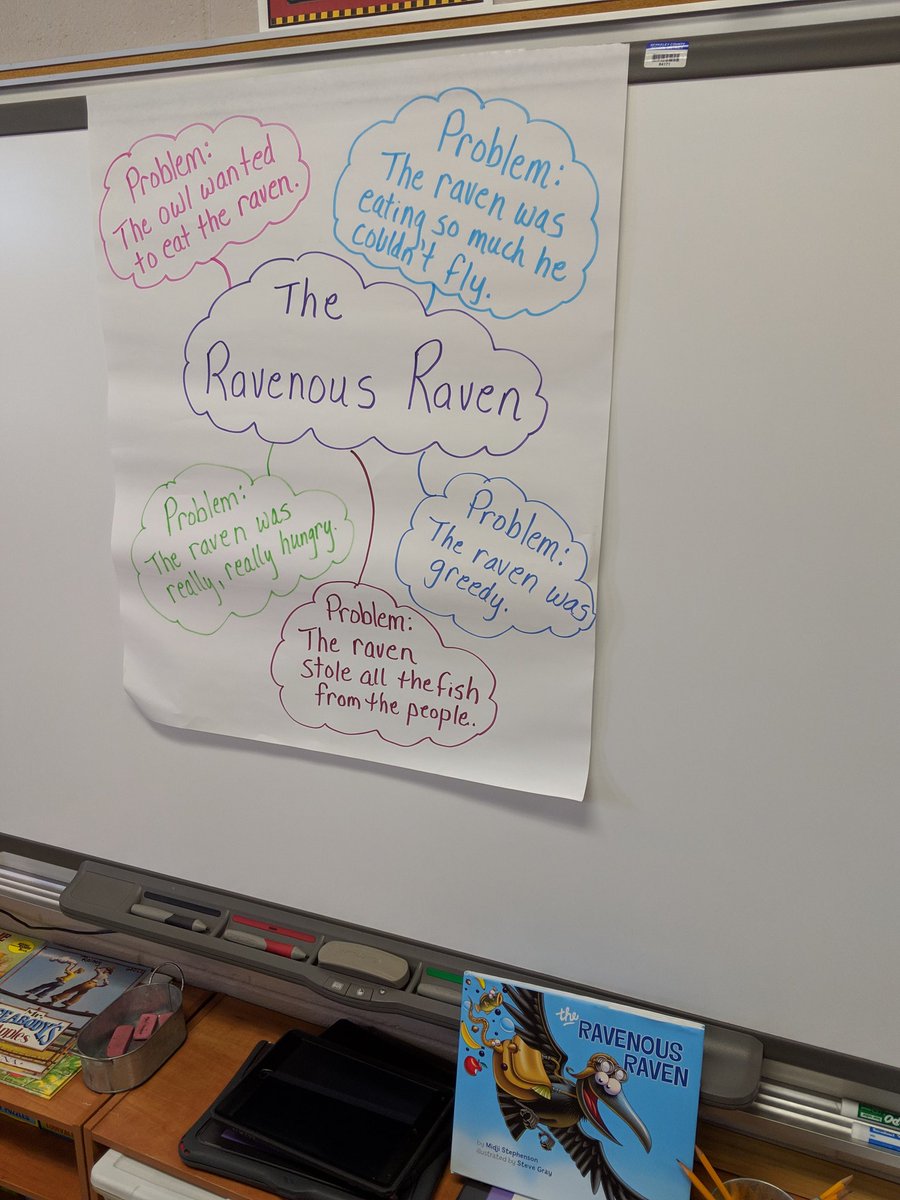 Problem:
The owl wanted
to eat the raven.
Problem:
The raven was
eating so much he
couldn't fly.
The
Ravenous Raven
Problem:
The raven was
really, really hungry.
Problem:
The raven was
greedy.
Problem:
The raven
stole all the fish
from the people.
the
RAVENOUS
RAVEN
by Midji Stephenson
illustrated by Steve Gray
PEABODY'S
Apples